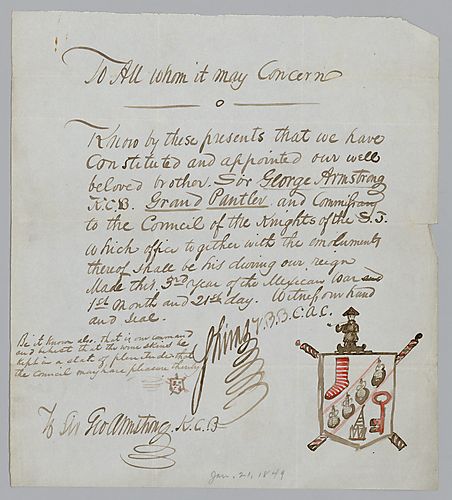 To All whom it may Concern
Know by these presents that we have
Constituted and appointed our well
beloved brother. Sir George Armstrong
K.C.B. Grand Pantler and Commissary
to the Council of the Knights of the S.J.
which office together with the emoluments
thereof shall be his during our reign
Made this 3rd year of the Mexican War and
1st Month and 21st day. Witness our hand
and Seal.
V.B.B.C.A.C.
Be it known also, that is our command
and behest that the wine skins be
kept in a state of plenitude that
the Council may have pleasure thereby
To Sir Geo Armstrong K.C.B
Jan. 21, 1849